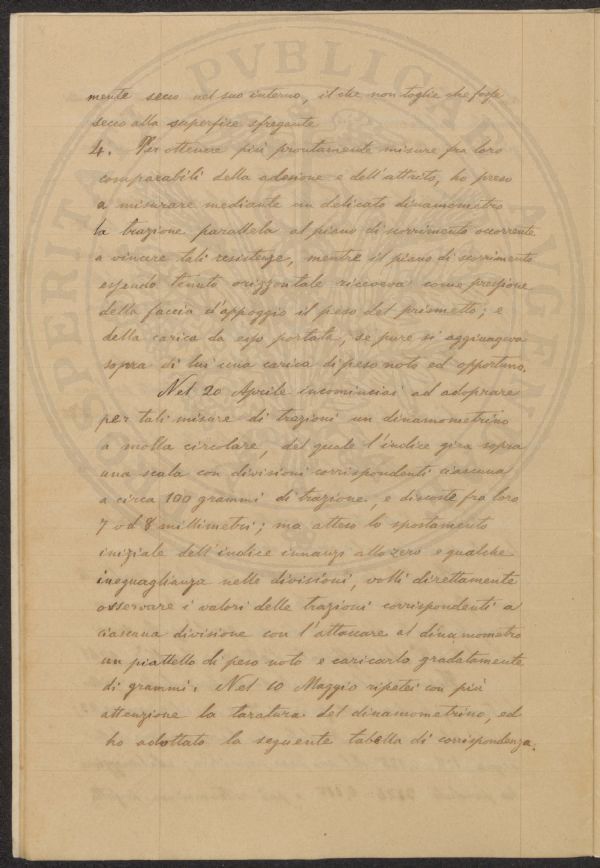 mente secco nel suo interno, il che non toglie che fosse
secco alla superficie sfregante
4. Per ottenere più prontamente misure fra loro
comparabili della adesione e dell'attrito, ho preso
a misurare mediante un delicato dinamometro
la trazione parallela al piano di scorrimento occorrente
a vincere tali resistenze, mentre il piano di scorrimento
essendo tenuto orizzontale riceveva come pressione
della faccia d'appoggio il peso del prismetto; e
della carica da esso portata, se pure si aggiungeva
sopra di lui una carica di peso noto ed opportuno.
Nel 20 Aprile incominciai ad adoprare
per tali misure di trazioni un dinamometrino
a molla circolare, del quale l'indice gira sopra
una scala con divisioni corrispondenti ciascuna
a circa 100 grammi di trazione, e discoste fra loro
7 od 8 millimetri; ma atteso lo spostamento
iniziale dell'indice innanzi allo zero e qualche
ineguaglianza nelle divisioni, volli direttamente
osservare i valori delle trazioni corrispondenti a
ciascuna divisione con l'attaccare al dinamometro
un piattello di peso noto e caricarlo gradatamente
di grammi. Nel 10 Maggio ripetei con più
attenzione la taratura del dinamometrino, ed
ho adottato la seguente tabella di corrispondenza.
PVBLICAE